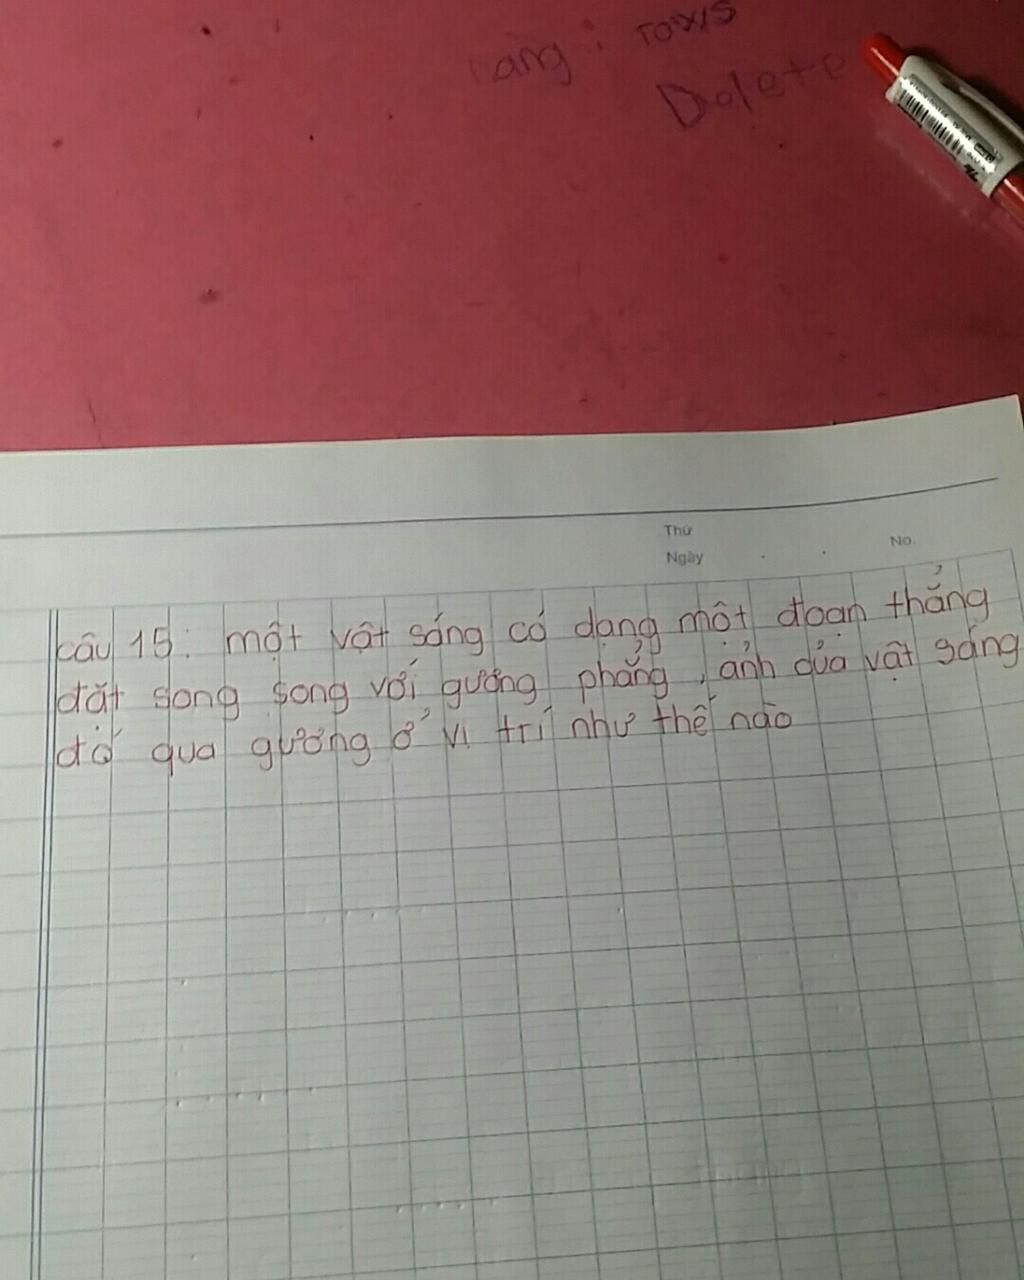 rang : rows
Delete
Thứ
Ngày
No.
câu 15: một vật sáng có dạng một đoạn thẳng
đặt song song với gương phẳng, ảnh của vật sáng
đó qua gương ở vị trí như thế nào